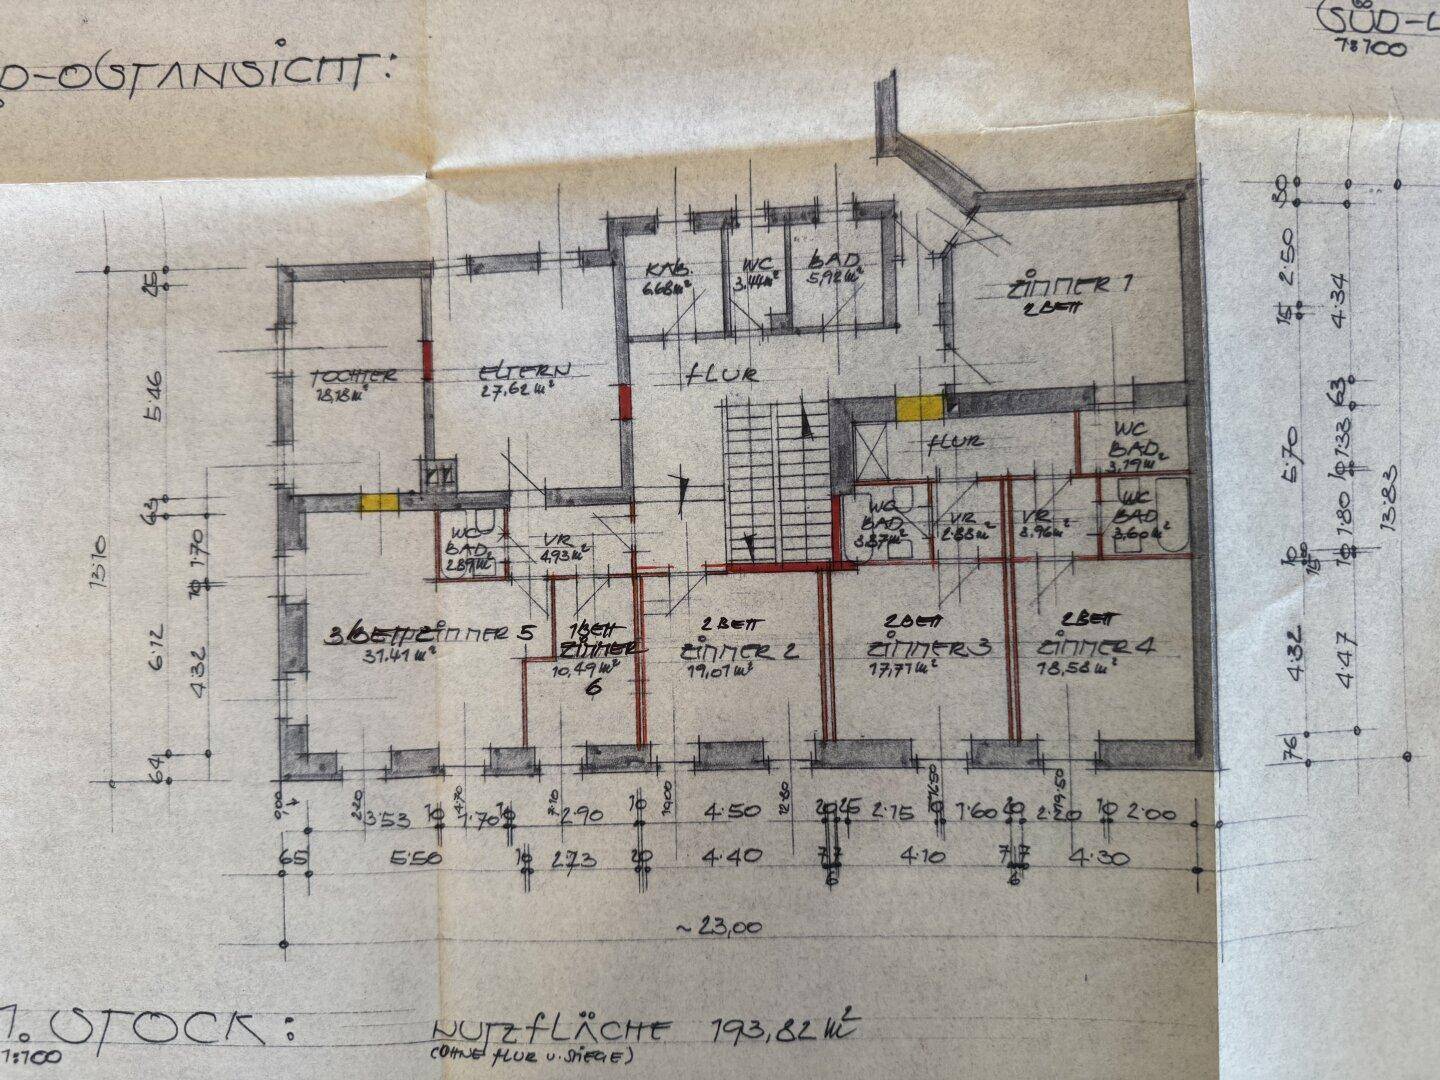 D-OSTANSICHT:
SÜD-
1:100
KAB.
6,68m²
WC
3.44m²
BAD
5,92m²
ZIMMER 1
2 BETT
TOCHTER
18,18m²
ELTERN
27,62m²
FLUR
FLUR
WC
BAD
3,79m²
WC
BAD
2.89m²
VR
4,93m²
WC
BAD
3.87m²
VR
2.88m²
VR
3.96m²
WC
BAD
3,60m²
3 BETT ZIMMER 5
31.41m²
1 BETT
ZIMMER
10,49m²
6
2 BETT
ZIMMER 2
19,01m²
2 BETT
ZIMMER 3
17,71m²
2 BETT
ZIMMER 4
18,58m²
13·10
5·46
63
6·12
64
1·70
10
4·32
80
2·50
15
5·70
10
15
4·32
76
4·34
63
1·33
10
1·80
10
4·47
13·83
900
2.20
19,00
12.80
3·53
10
1·70
10
2·90
10
4·50
20
25
2·75
1·60
20
2·20
10
2·00
65
5·50
10
2·73
20
4·40
7
7
6
4·10
7
7
6
4·30
~23,00
1. STOCK:
1:100
NUTZFLÄCHE 193,82 m²
(OHNE FLUR U. STIEGE)